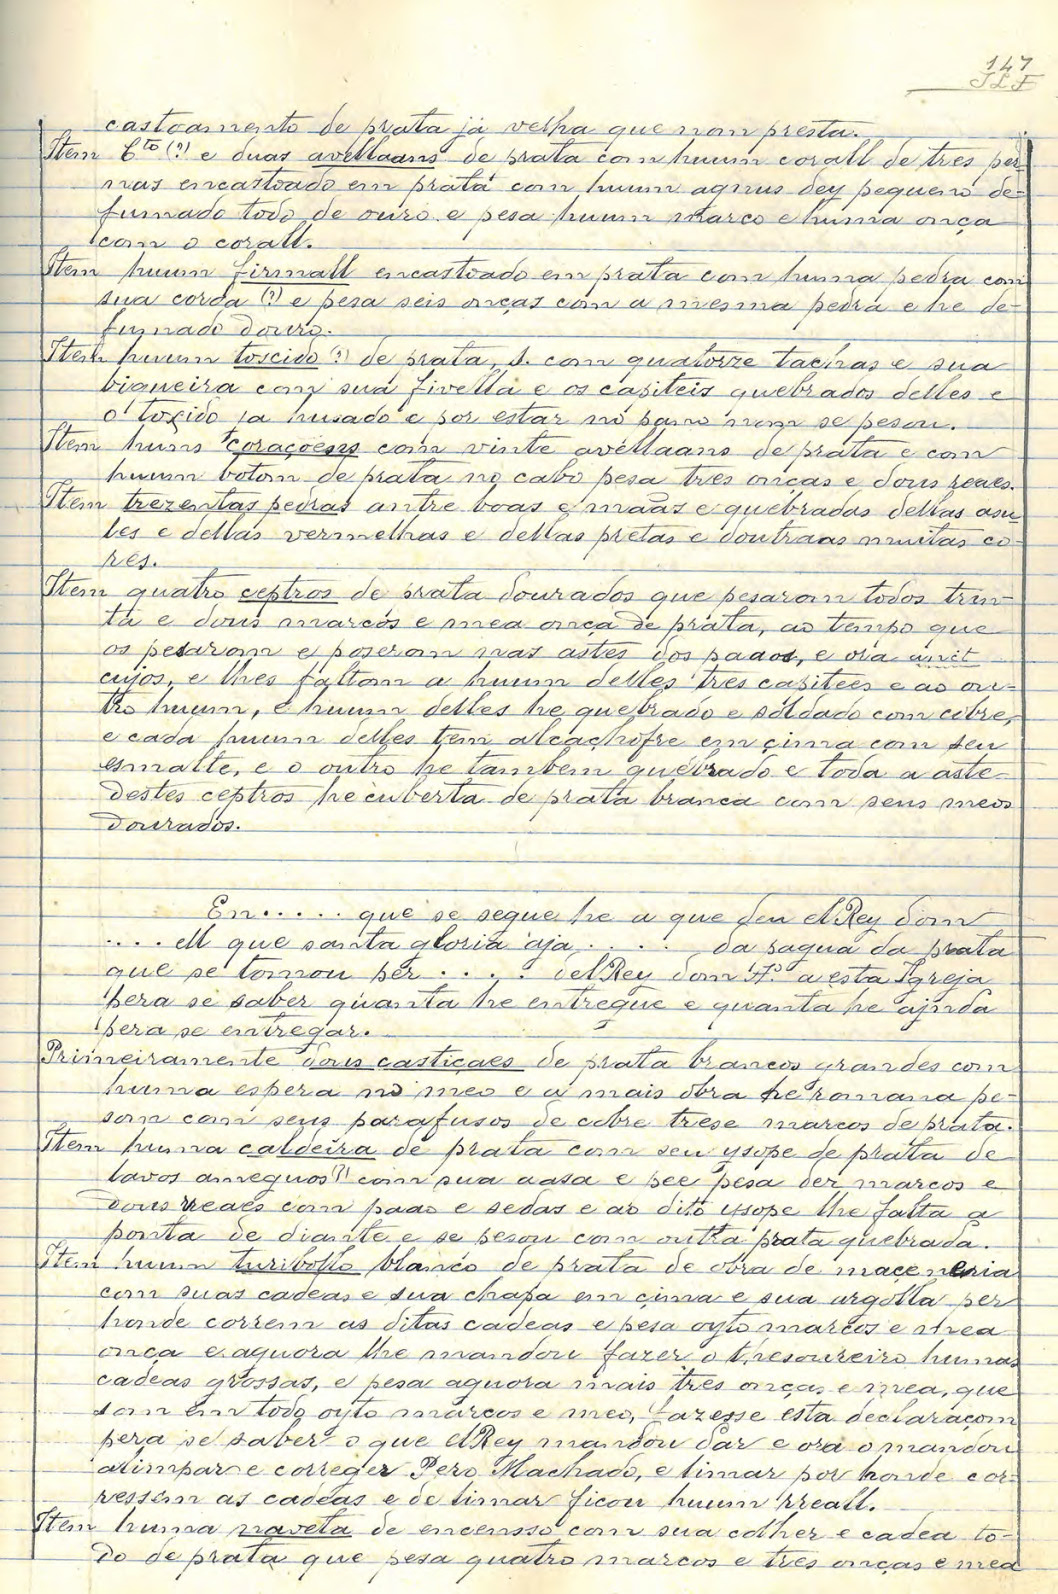 147
JLF
castoamento de prata já velha que nom presta.
Item Cto (?) e duas avellaans de prata com huum corall de tres per-
nas encastoado em prata com huum agnus dey pequeno de-
fumado todo de ouro e pesa huum marco e huma onça
com o corall.
Item huum firmall encastoado em prata com huma pedra com
sua corda (?) e pesa seis onças com a mesma pedra e he de-
fumado douro.
Item huum toscido (?) de prata, s. com quatorze tachas e sua
biqueira com sua fivella e os capiteis quebrados delles e
o toscido ja husado e por estar no pano nom se pesou.
Item huns coraçoens com vinte avellaans de prata e com
huum botom de prata no cabo pesa tres onças e dous reaes.
Item trezentas pedras antre boas e maãs e quebradas dellas asu-
les e dellas vermelhas e dellas pretas e doutraas muitas co-
res.
Item quatro ceptros de prata dourados que pesarom todos trin-
ta e dous marcos e mea onça de prata, ao tempo que
os pesarom e poserom nas astes dos paaos, e ora
cujos, e lhes faltom a huum delles tres capitees e ao ou-
tro huum, e huum delles he quebrado e soldado com cobre,
e cada huum delles tem alcachofre em çima com seu
esmalte, e o outro he tambem quebrado e toda a aste
destes ceptros he cuberta de prata branca com seus meos
dourados.
En ..... que se segue he a que deu elRey dom
.... ell que santa gloria aja .... da pagua da prata
que se tomou per .... delRey dom Aº a esta Igreja
pera se saber quanta he entregue e quanta he ajnda
pera se entregar.
Primeiramente dous castiçaes de prata brancos grandes com
huma espera no meo e a mais obra he romana pe-
som com seus parafusos de cobre trese marcos de prata.
Item huma caldeira de prata com seu ysope de prata de
lavos ameguos (?) com sua aasa e pee pesa dez marcos e
dous reaes com paao e sedas e ao dito ysope lhe falta a
ponta de diante e se pesou com outra prata quebrada.
Item huum turibollo blanco de prata de obra de maceneria
com suas cadeas e sua chapa em çima e sua argolla per
honde correm as ditas cadeas e pesa oyto marcos e mea
onça e aquora lhe mandou fazer o thesoureiro humas
cadeas grossas, e pesa aguora mais tres onças e mea, que
som em todo oyto marcos e meo, fazesse esta declaraçom
pera se saber o que elRey mandou dar e ora o mandou
alimpar e correger Pero Machado, e limar por honde cor-
ressem as cadeas e de limar ficou huum rreall.
Item huma naveta de encensso com sua colher e cadea to-
do de prata que pesa quatro marcos e tres onças e mea